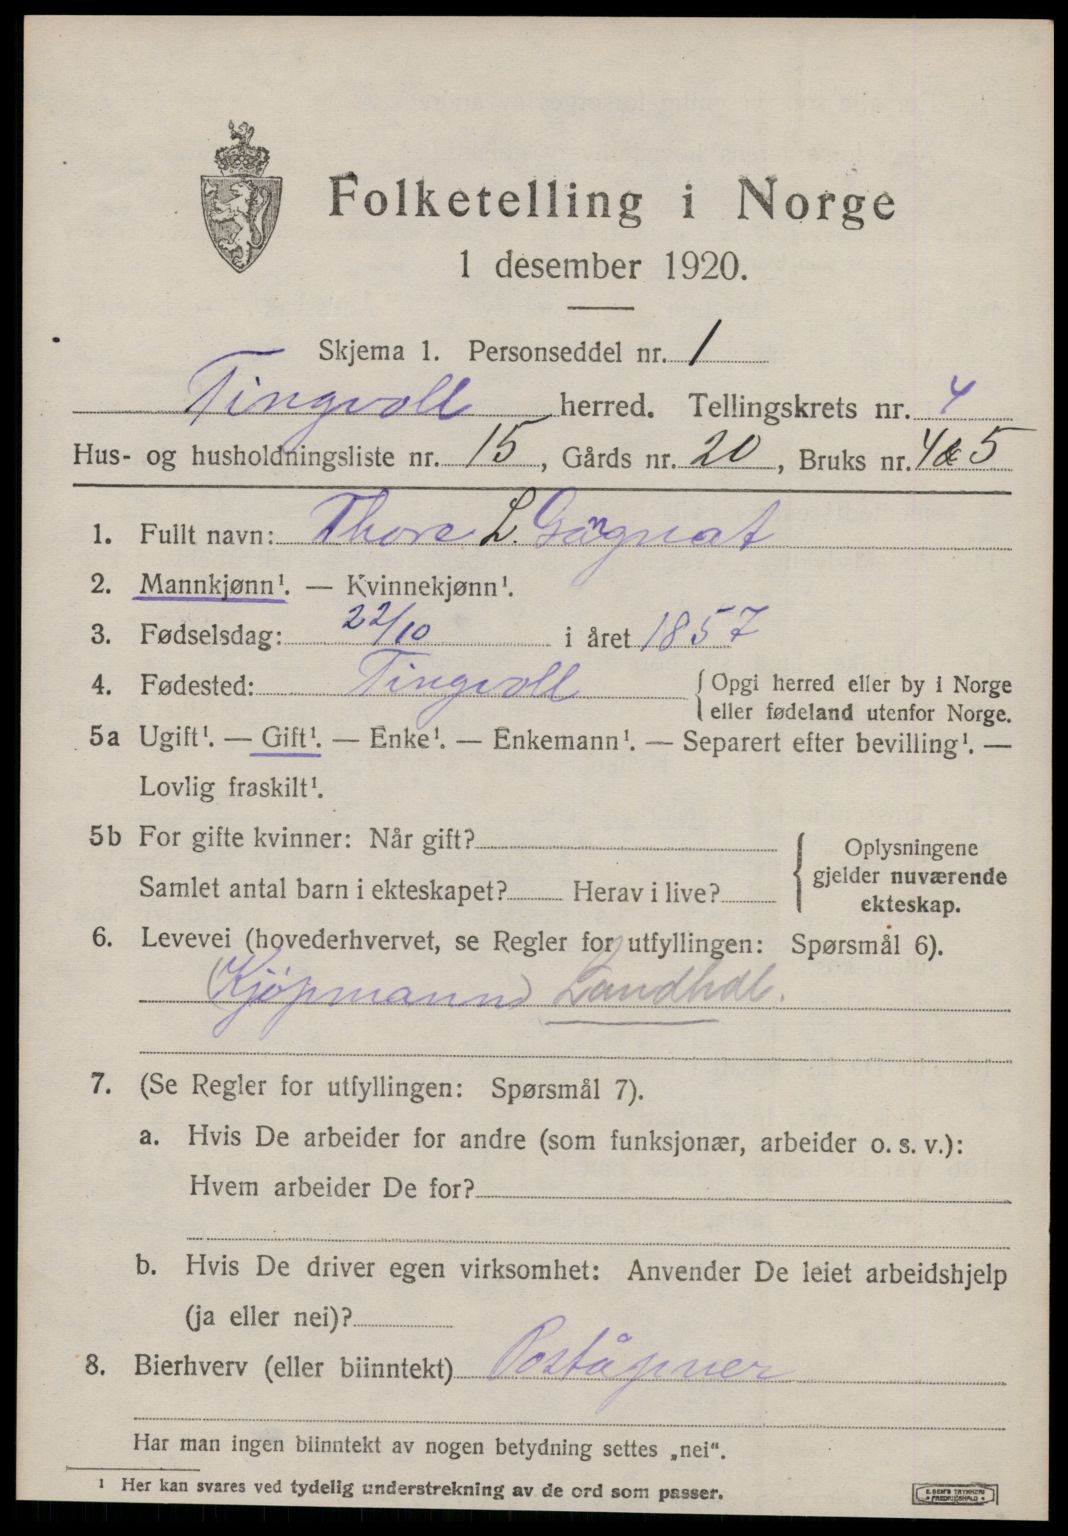 Folketelling i Norge
1 desember 1920.
Skjema 1. Personseddel nr. 1
Tingvoll herred. Tellingskrets nr. 4
Hus- og husholdningsliste nr. 15, Gårds nr. 20, Bruks nr. 4 & 5
1. Fullt navn: Thore L. Gangnat
2. Mannkjønn¹. — Kvinnekjønn¹.
3. Fødselsdag: 22/10 i året 1857
4. Fødested: Tingvoll { Opgi herred eller by i Norge
eller fødeland utenfor Norge.
5a Ugift¹. — Gift¹. — Enke¹. — Enkemann¹. — Separert efter bevilling¹. —
Lovlig fraskilt¹.
5b For gifte kvinner: Når gift?
Samlet antal barn i ekteskapet? Herav i live?
{ Oplysningene
gjelder nuværende
ekteskap.
6. Levevei (hovederhvervet, se Regler for utfyllingen: Spørsmål 6).
(Kjøpmann) Landhdl.
7. (Se Regler for utfyllingen: Spørsmål 7).
a. Hvis De arbeider for andre (som funksjonær, arbeider o. s. v.):
Hvem arbeider De for?
b. Hvis De driver egen virksomhet: Anvender De leiet arbeidshjelp
(ja eller nei)?
8. Bierhverv (eller biinntekt) Poståpner
Har man ingen biinntekt av nogen betydning settes „nei“.
¹ Her kan svares ved tydelig understrekning av de ord som passer.